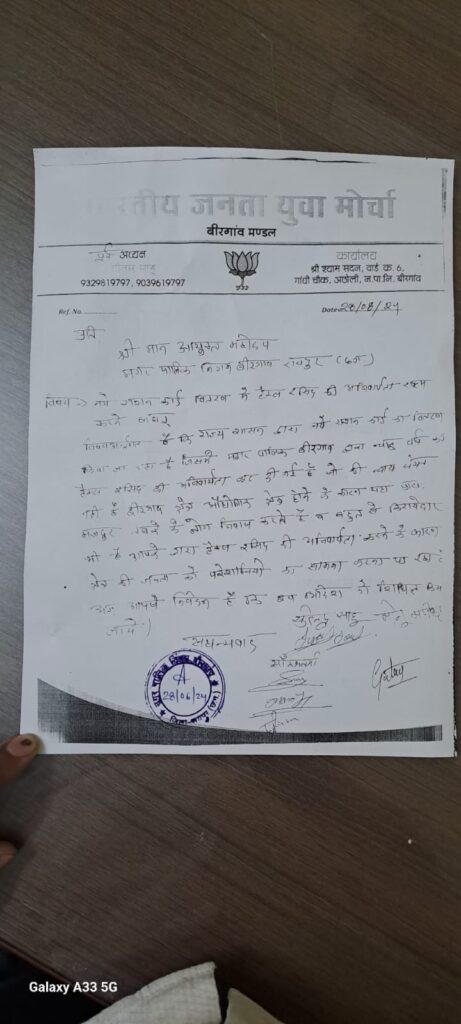 भारतीय जनता युवा मोर्चा
बीरगांव मण्डल
पूर्व अध्यक्ष
9329819797, 9039619797
कार्यालय
श्री श्याम सदन, वार्ड क्र. 6,
गांधी चौक, अछोली, न.पा.नि. बीरगांव
Ref. No.
Date 28/06/24
प्रति
श्री मान आयुक्त महोदय
नगर पालिक निगम बीरगांव रायपुर (छ.ग.)
विषय :- नये राशन कार्ड वितरण में टैक्स रसिद की अनिवार्यता
करने बाबत्
है कि राज्य शासन द्वारा नये राशन कार्ड का वितरण
किया जा रहा है जिसमें नगर पालिक बीरगांव द्वारा
टैक्स रसिद की अनिवार्यता कर दी गई है जो की न्याय संगत
नही है बीरगांव क्षेत्र औद्योगिक क्षेत्र होने के कारण यहां
मजदूर के लोग निवास करते है व बहुत से किरायेदार
भी है आपके द्वारा टैक्स रसिद की अनिवार्यता करने के कारण
क्षेत्र की जनता को परेशानियों का सामना करना पड़ रहा है
अतः आपसे निवेदन है कि इस आदेश को शिथिल किया
जाये।
सधन्यवाद
28/06/24
Galaxy A33 5G